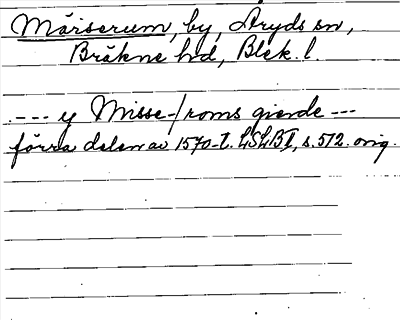 Mörserum, by, Åryds sn,
Bräkne hd, Blek. l.
--- y Misse-/roms gierde ---
förra delen av 1570-t. LSLB I, s. 572. orig.